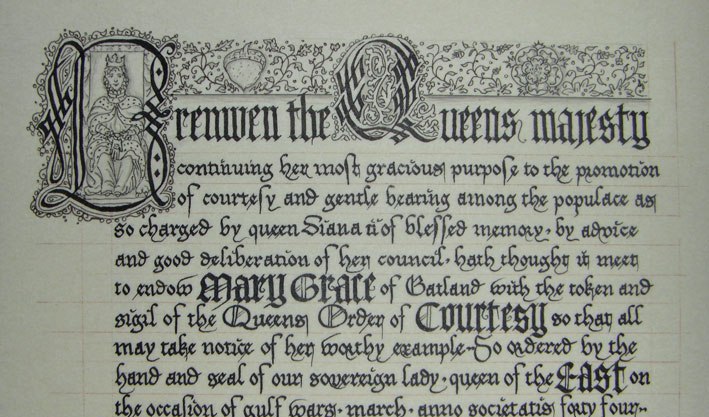 Brenwen the Queens majesty
continuing her most gracious purpose to the promotion
of courtesy and gentle bearing among the populace as
so charged by queen Siana ii of blessed memory · by advice
and good deliberation of her council · hath thought it meet
to endow Mary Grace of Gatland with the token and
sigil of the Queens Order of Courtesy so that all
may take notice of her worthy example · So ordered by the
hand and seal of our sovereign lady · queen of the East on
the occasion of gulf wars · march · anno societatis forty four-